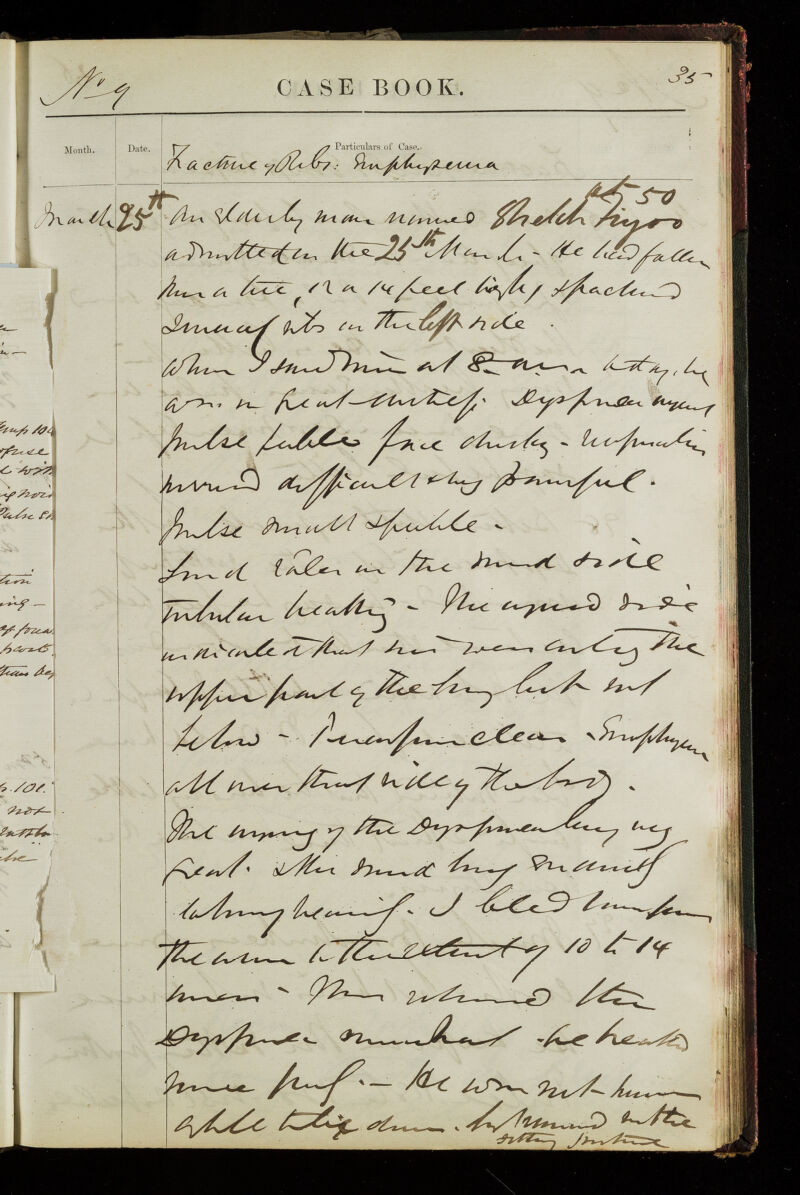 No 9
CASE BOOK.
35
Month.
Date.
Particulars of Case.
Fracture of Ribs: Emphysema
March 25th
An Elderly man named Sheikh aet 50
admitted on the 25th March - He had fallen
from a tree, 12 or 14 feet high & fractured
Several ribs on the left side.
When I saw him at 8 a.m. he
was in great distress. Dyspnœa urgent
pulse feeble face dusky - respiration
hurried difficult & very painful.
Pulse small & feeble -
Loud râles on the sound side
tubular breathing - The injured side
indicated that air was entering the
upper part of the lung but not
below - Percussion clear - Emphysema
all over that side of the body.
The urgency of the Dyspnœa being very
great. & the sound lung evidently
labouring heavily. I bled him from
the arm to the extent of 10 to 14
ounces - This relieved the
Dyspnœa somewhat - he breathed
more freely. - He was not however
able to lie down. but remained in the
sitting posture